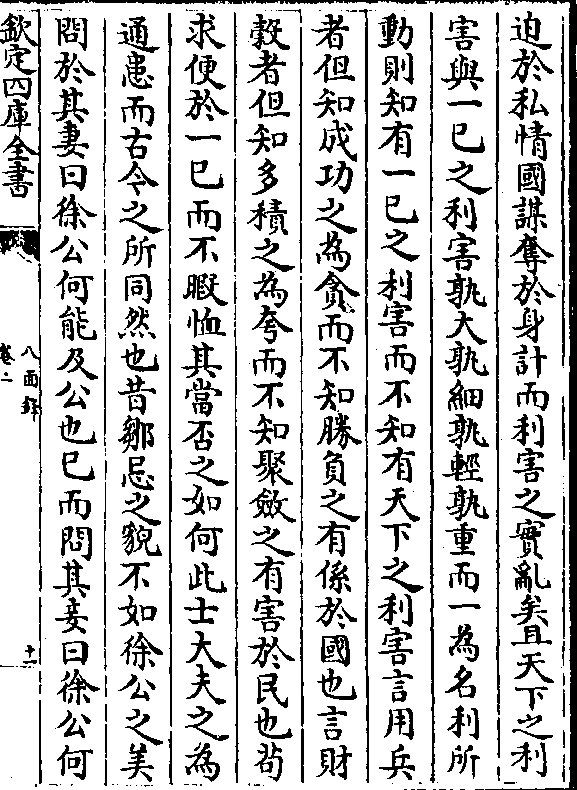 迫於私情國謀奪於身計而利害之實亂矣且天下之利
害與一已之利害孰大孰細孰輕孰重而一為名利所
動則知有一已之利害而不知有天下之利害言用兵
者但知成功之為貪而不知勝負之有係於國也言財
穀者但知多積之為夸而不知聚斂之有害於民也苟
求便於一已而不暇恤其當否之如何此士大夫之為
通患而古今之所同然也昔鄒忌之貌不如徐公之美
問於其妻曰徐公何能及公也已而問其妾曰徐公何
欽定四庫全書
八面鋒
卷二
十一